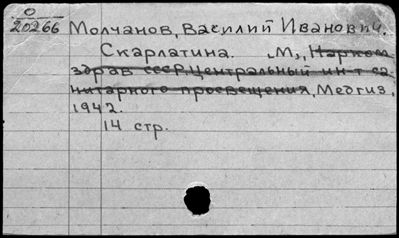 О
20266
Молчанов, Василий Иванович.
Скарлатина. М., Нарком
здрав СССР, Центральный ин-т са
нитарного просвещения, Медгиз,
1942.
14 стр.